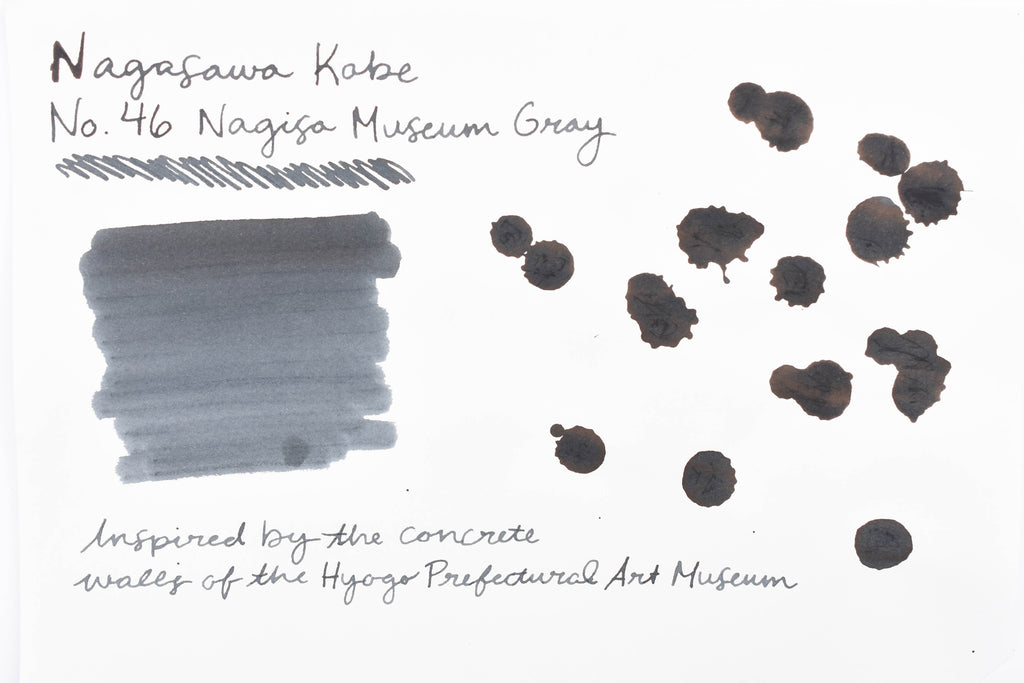 Nagasawa Kobe
No. 46 Nagisa Museum Gray
Inspired by the concrete
walls of the Hyogo Prefectural Art Museum